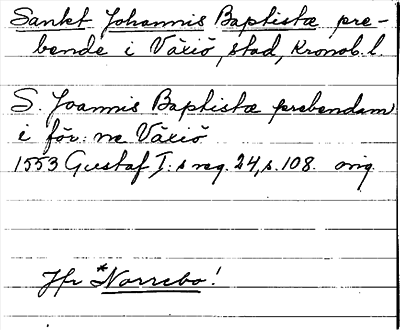 Sankt Johannis Baptistæ pre-
bende i Växiö, stad, Kronob. l.
S. Joannis Baptistæ prebendam
i för:ne Växiö
1553 Gustaf I:s reg. 24, s. 108. orig.
Jfr *Norrebo!